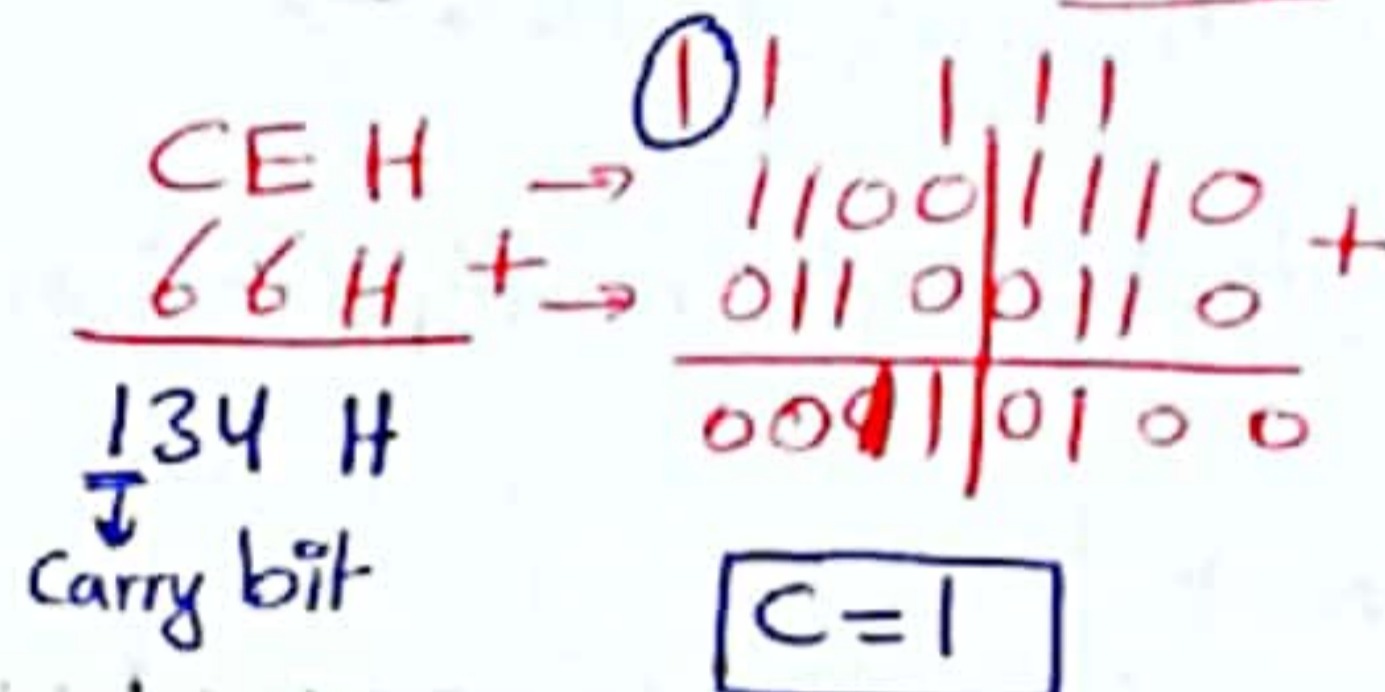 1 1 1 1 1
CE H → 1100 1110
66 H + → 0110 0110 +
134 H 0011 0100
Carry bit
C=1